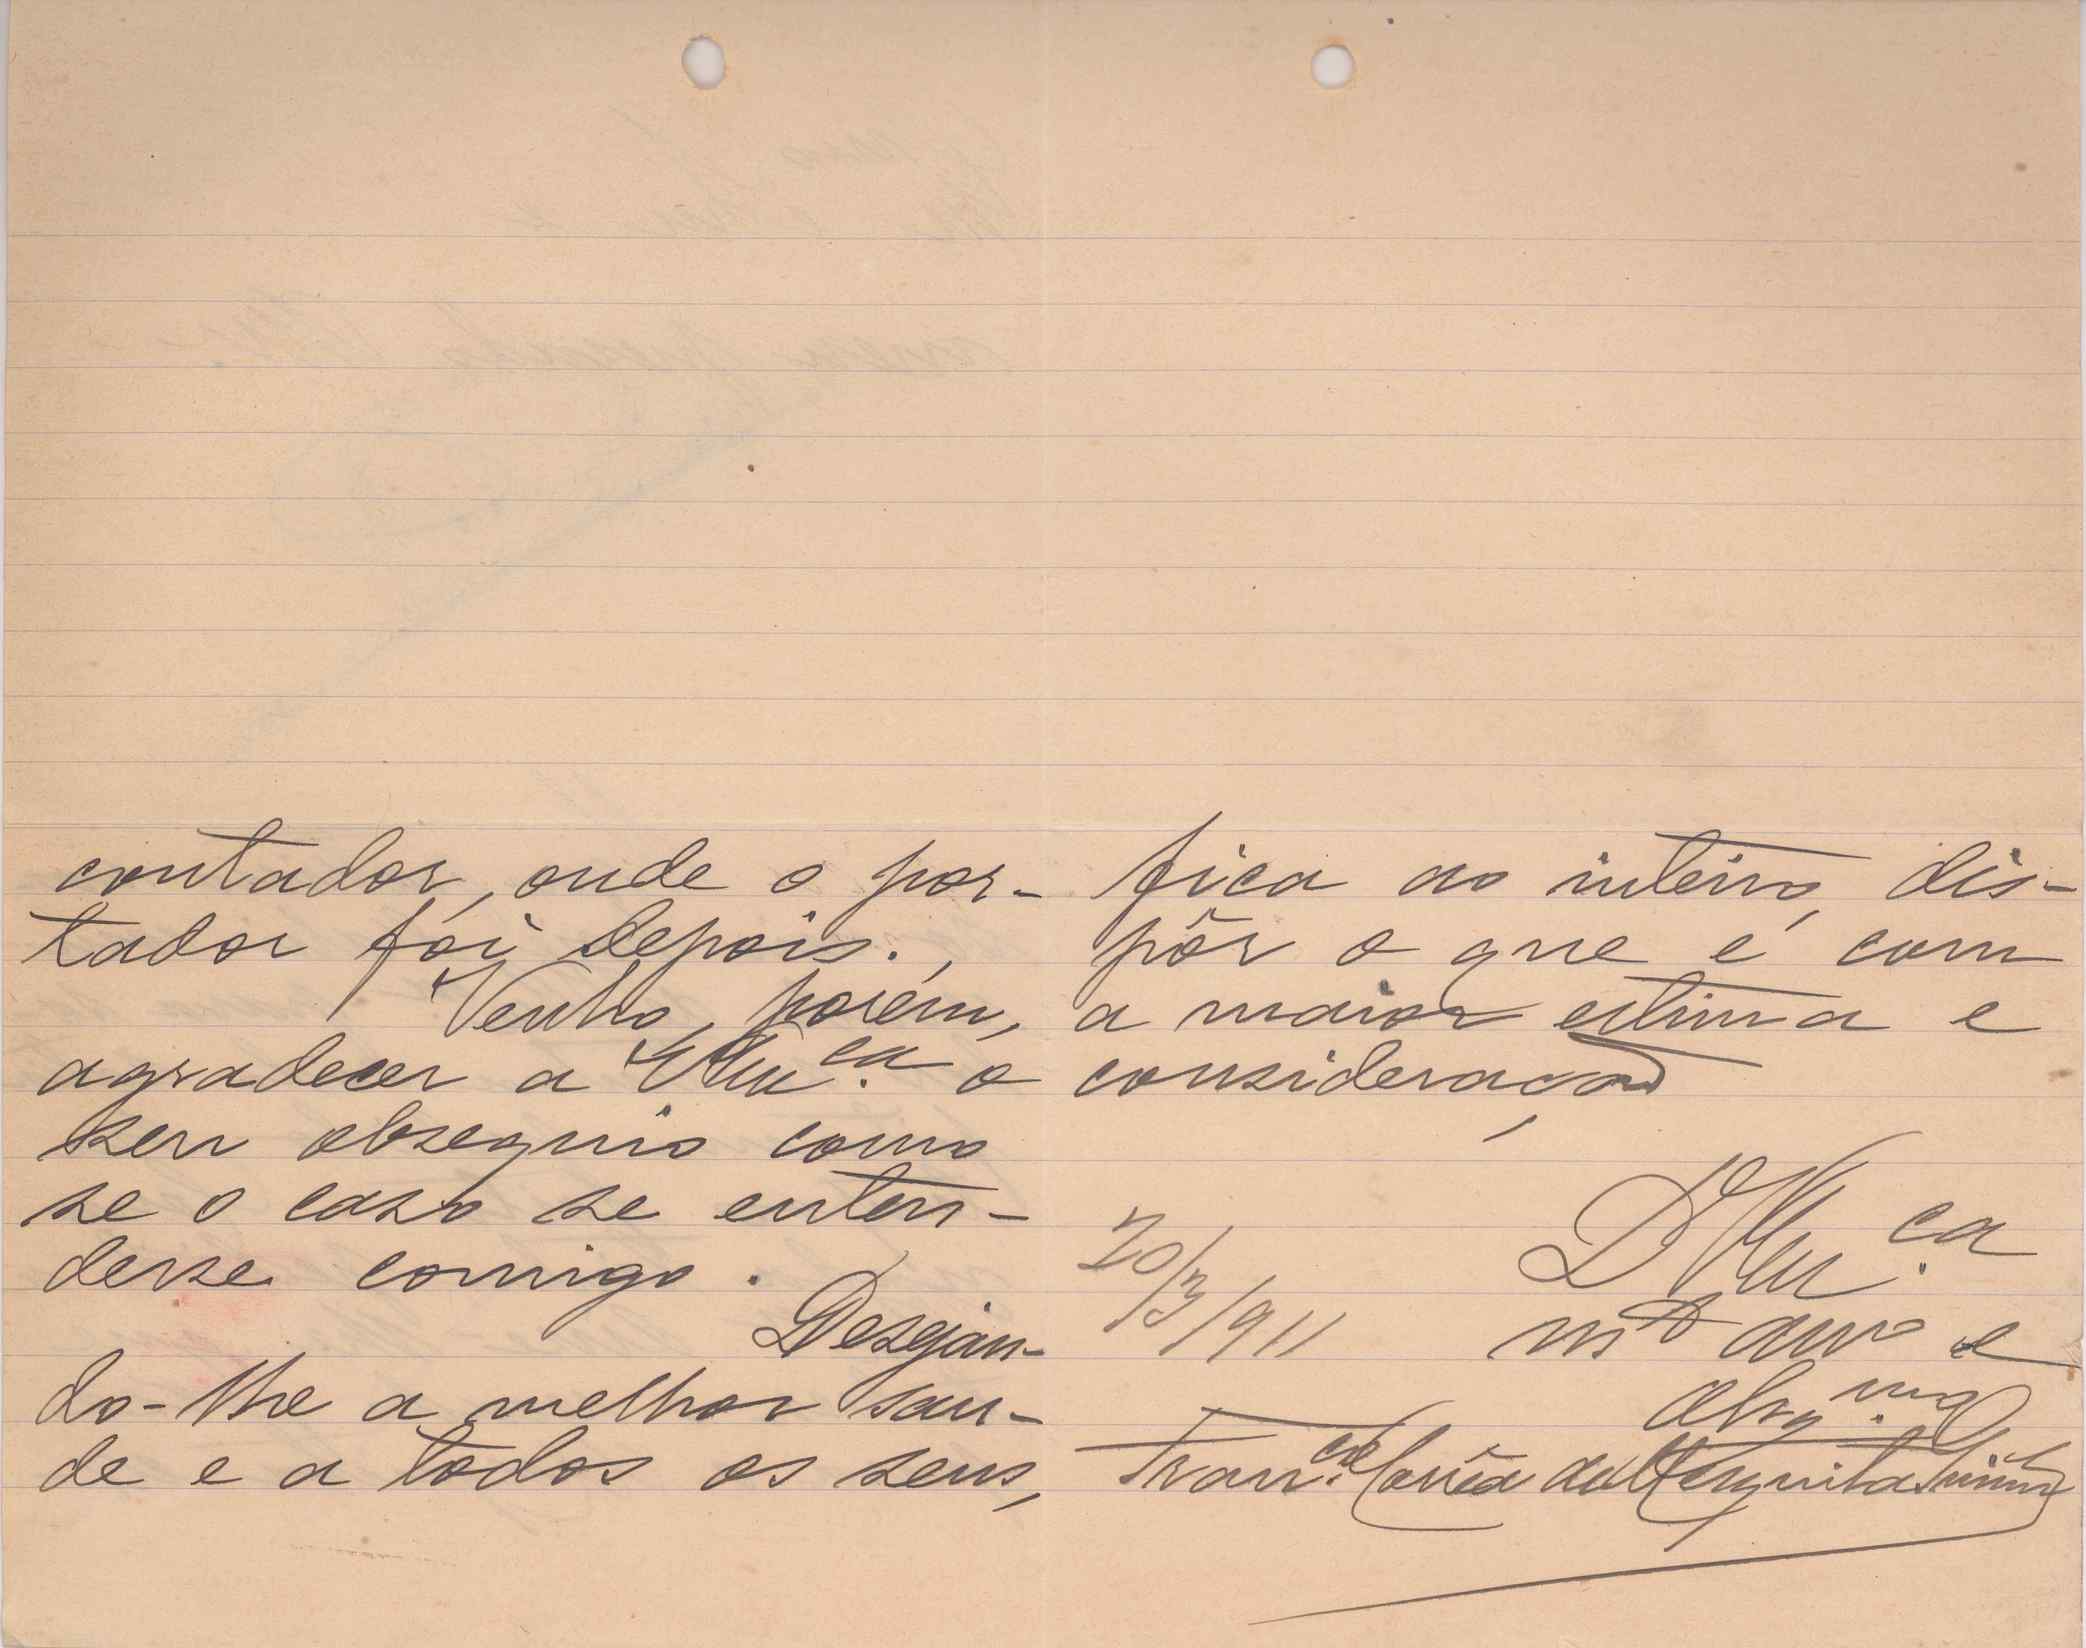 contador, onde o por-
tador foi depois.
Venho, porém,
agradecer a V. Em.ca o
seu obsequio como
se o caso se enten-
desse comigo.
Desejan-
do-lhe a melhor sau-
de e a todos os seus,
fica ao inteiro, dis-
pôr o que é com
a maior estima e
consideração
D V. Em.ca
20/3/911
mto amo e
obrg.mo
Fran.co Corrêa de Mesquita